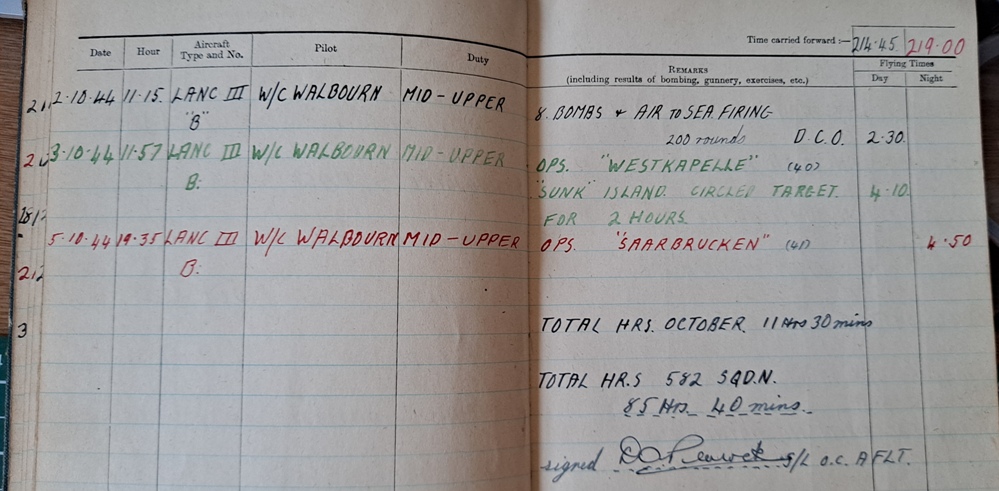 Time carried forward :— 214.45 219.00
Date Hour Aircraft Type and No. Pilot Duty
REMARKS
(including results of bombing, gunnery, exercises, etc.)
Flying Times
Day Night
2.10.44 11.15. LANC III W/C WALBOURN MID-UPPER 8. BOMBS & AIR TO SEA FIRING
"B" 200 rounds D.C.O. 2.30.
3.10.44 11.57 LANC III W/C WALBOURN MID-UPPER OPS. "WESTKAPELLE" (40)
B. "SUNK" ISLAND. CIRCLED TARGET. 4.10.
FOR 2 HOURS.
5.10.44 19.35 LANC III W/C WALBOURN MID-UPPER OPS. "SAARBRUCKEN" (41) 4.50
B.
3
TOTAL HRS. OCTOBER. 11 Hrs 30 mins
TOTAL HR.S 582 SQD.N.
85 Hrs. 40 mins.
signed S/L O.C. A FLT.